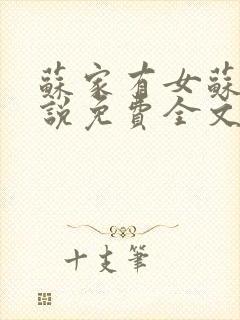 蘇家有女蘇
說免費全文
十支筆